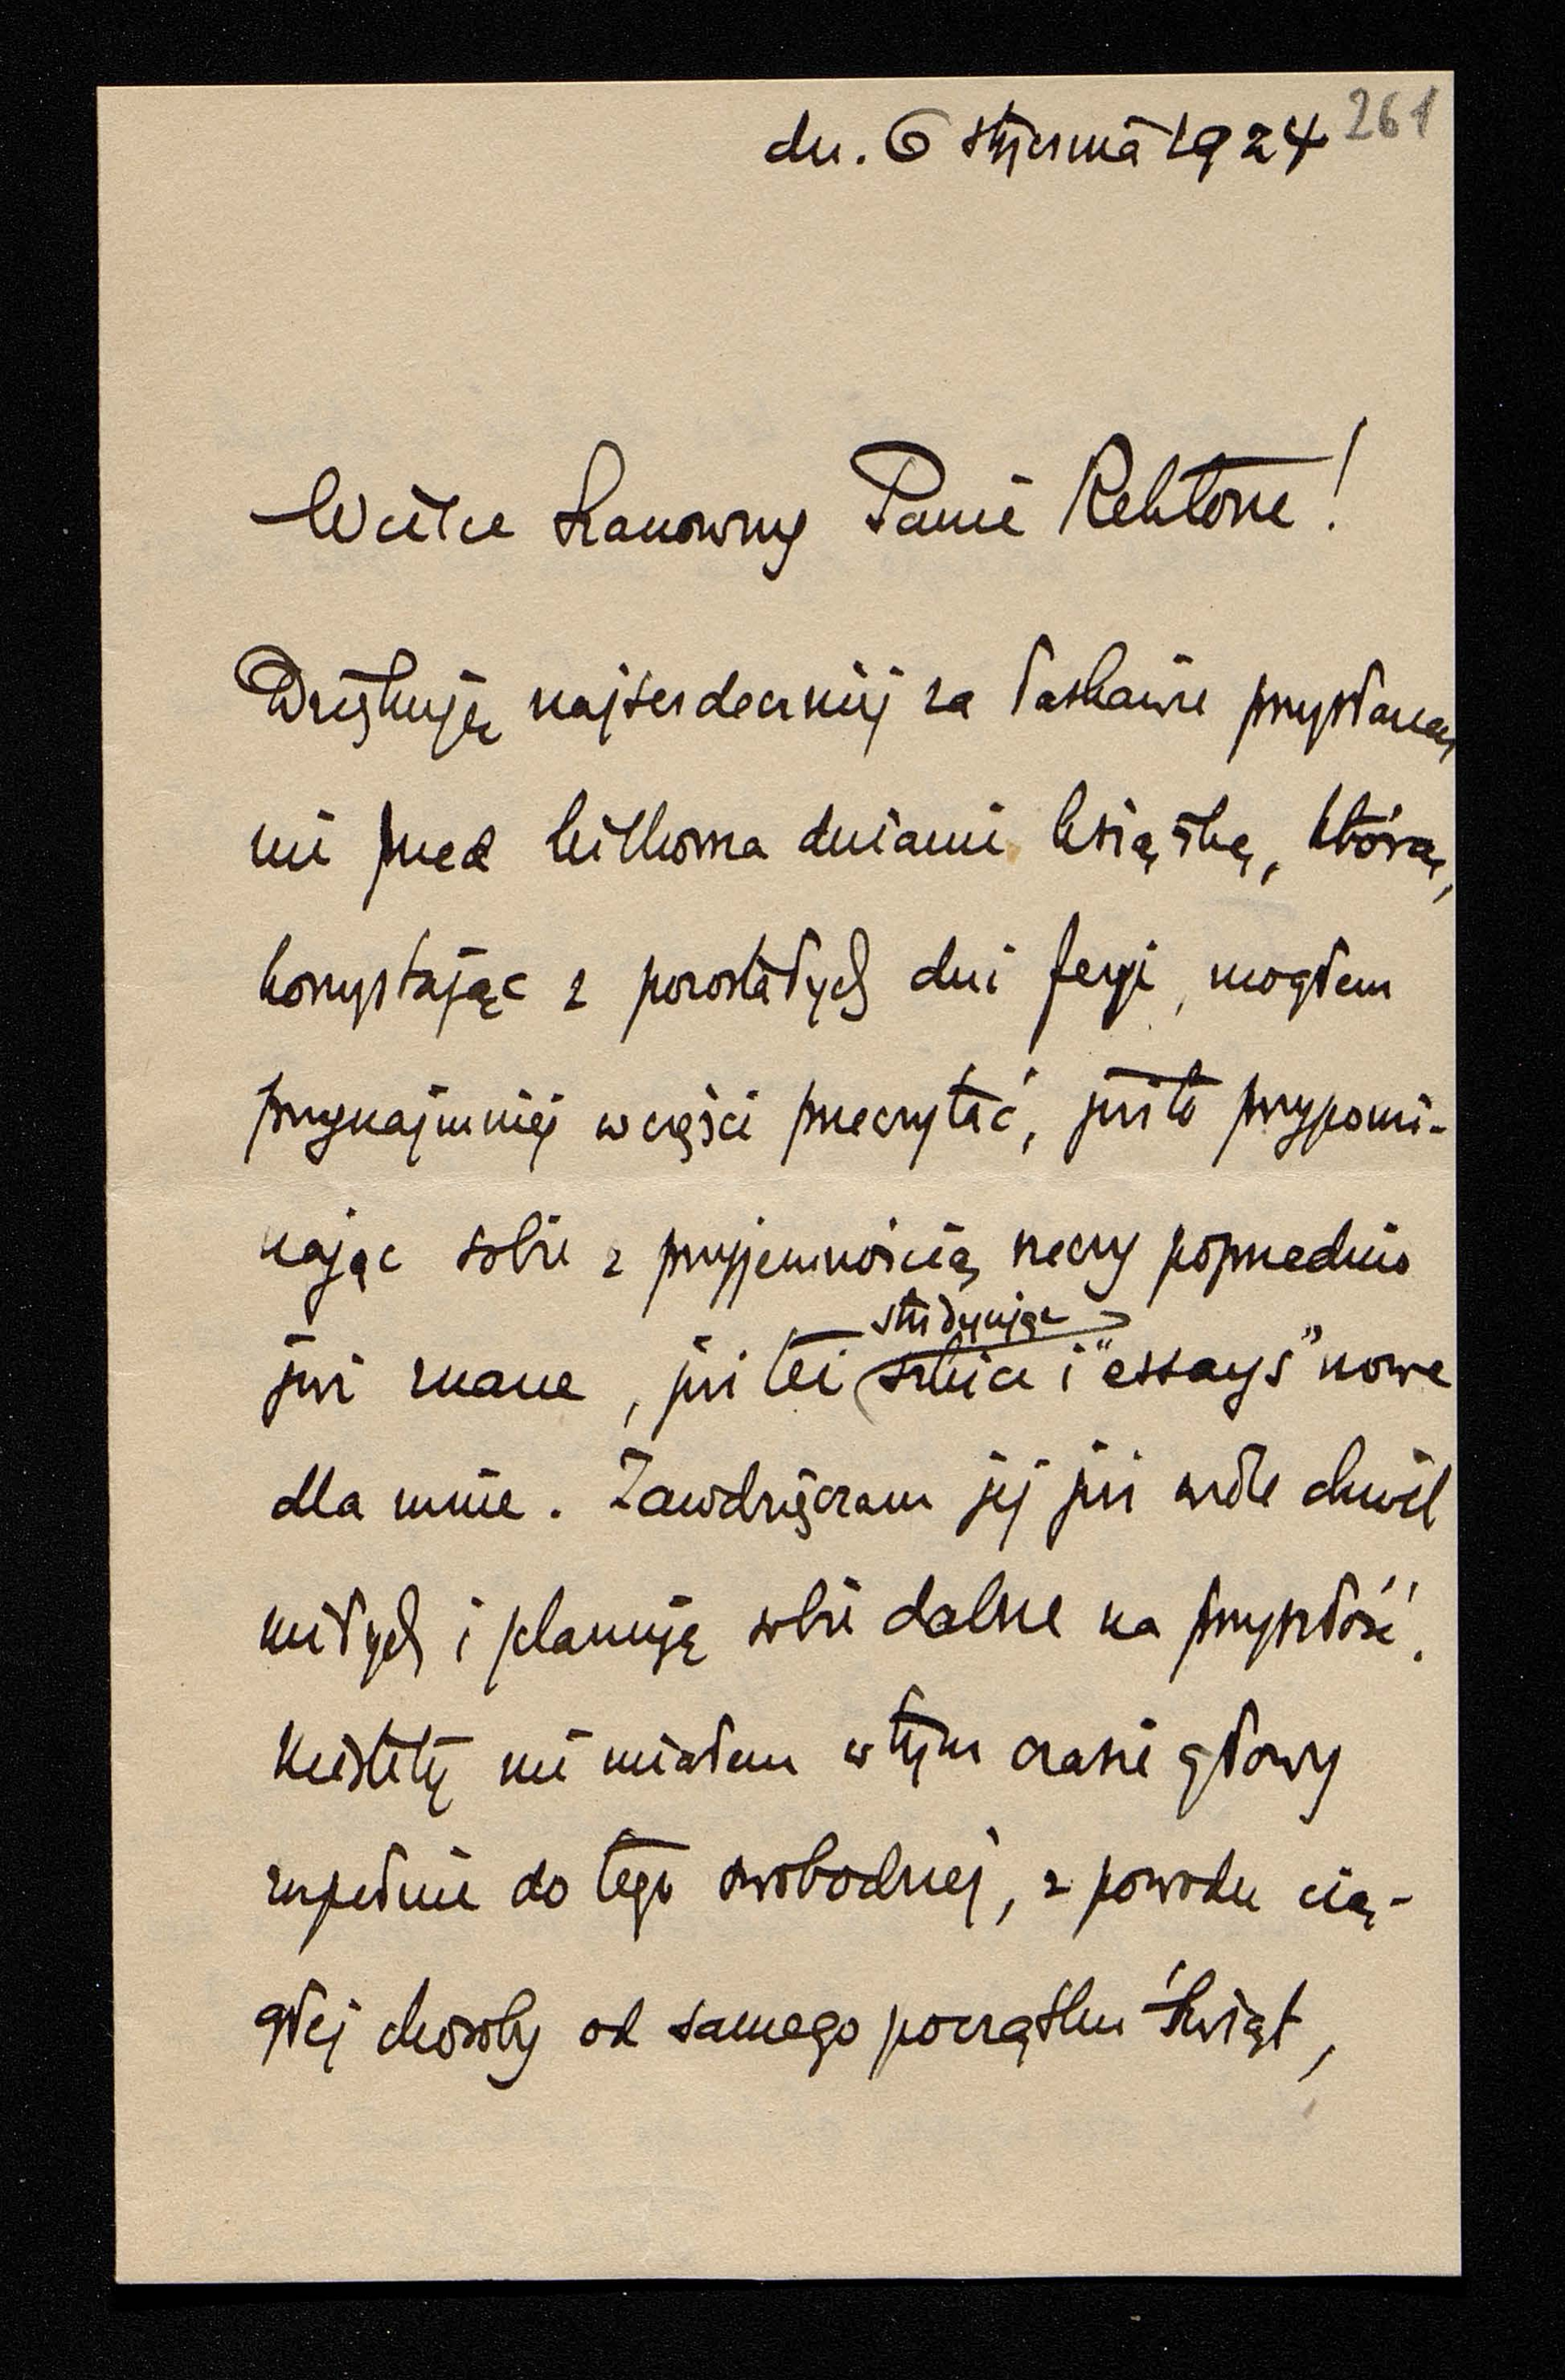 261
dn. 6 stycznia 1924
Wielce Szanowny Panie Rektorze!
Dziękuję najserdeczniej za łaskawie przysłaną
mi przed kilkoma dniami książkę, którą,
korzystając z pozostałych dni feryi, mogłem
przynajmniej w części przeczytać, już to przypomi-
nając sobie z przyjemnością rzeczy poprzednio
studyując
już znane, już też szkice i "essays" nowe
dla mnie. Zawdzięczam jej już wiele chwil
miłych i planuję sobie dalsze na przyszłość.
Niestety nie miałem w tym czasie głowy
zupełnie do tego swobodnej, z powodu cią-
głej choroby od samego początku Świąt,